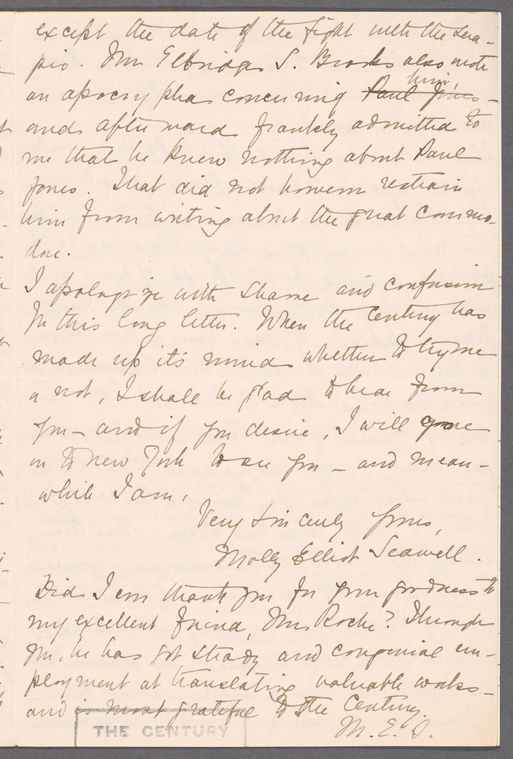 except the date of the fight with the Sera-
pis. Mr Elbridge S. Brooks also wrote
an apocrypha concerning Paul Jones him,-
and afterward frankly admitted to
me that he knew nothing about Paul
Jones. That did not however restrain
him from writing about the great Commo-
dore.
I apologize with shame and confusion
for this long letter. When the Century has
made up it's mind whether to try me
or not, I shall be glad to hear from
you - and if you desire, I will come
on to New York to see you - and mean-
while I am,
Very sincerely yours,
Molly Elliot Seawell.
Did I ever thank you for your goodness to
my excellent friend, Mr Roche? Through
you, he has got steady and congenial em-
ployment at translating valuable works -
and is most grateful to the Century.
M. E. S.
THE CENTURY